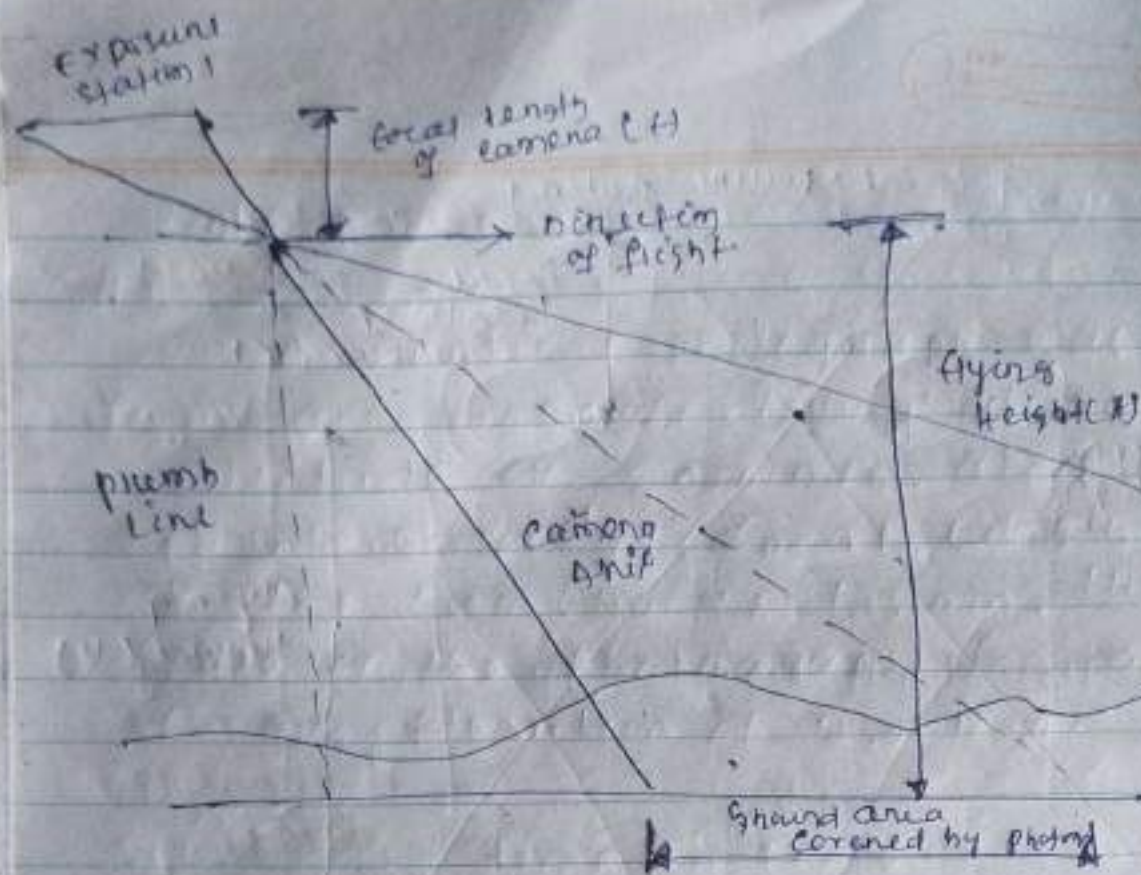 Exposure
station 1
focal length
of camera (f)
Direction
of flight
flying
Height(H)
plumb
Line
Camera
Axis
Ground area
covered by photo